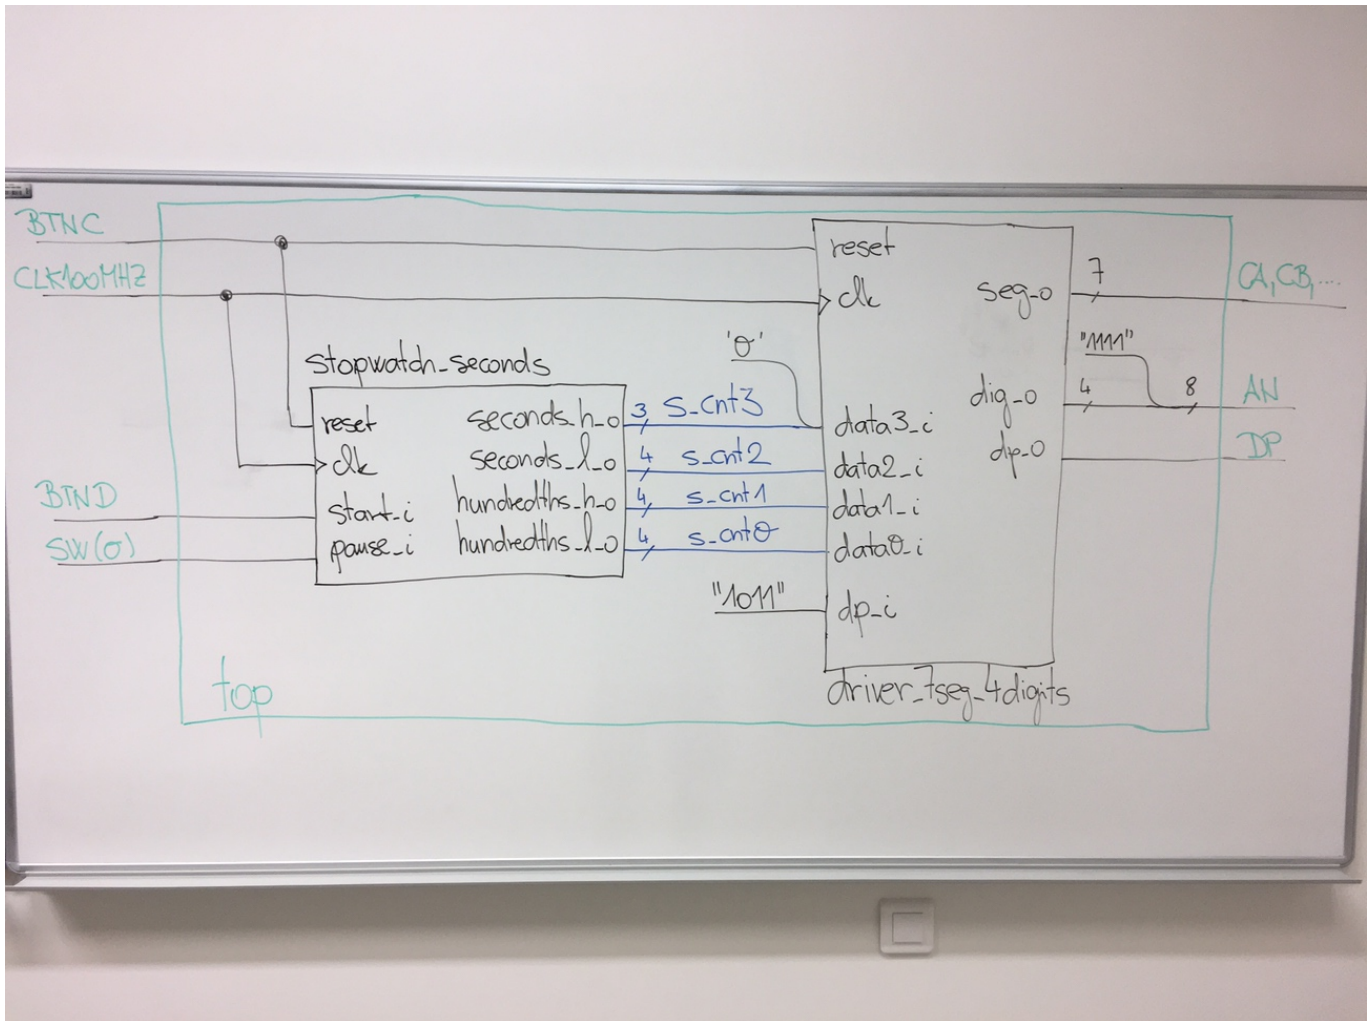 BTNC
CLK100MHZ
BTND
SW(0)
top
stopwatch_seconds
reset
clk
start_i
pause_i
seconds_h_o
seconds_l_o
hundredths_h_o
hundredths_l_o
3 s_cnt3
4 s_cnt2
4 s_cnt1
4 s_cnt0
'0'
"1011"
reset
clk
data3_i
data2_i
data1_i
data0_i
dp_i
seg_o
dig_o
dp_o
driver_7seg_4digits
7
"1111"
4
8
CA,CB,....
AN
DP